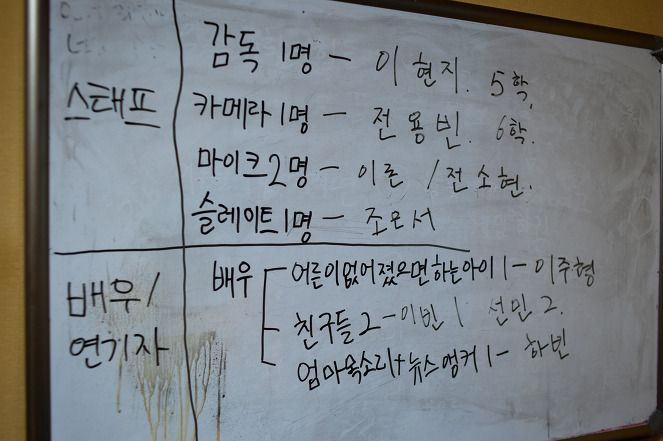 스태프
감독 1명 - 이현지. 5학.
카메라 1명 - 전용빈. 6학.
마이크 2명 - 이론 / 전소현.
슬레이트 1명 - 조은서
배우/
연기자
배우
어른이 없어졌으면 하는 아이 1 - 이주형
친구들 2 - 이빈 1 선민 2.
엄마 목소리 + 뉴스앵커 1 - 하빈